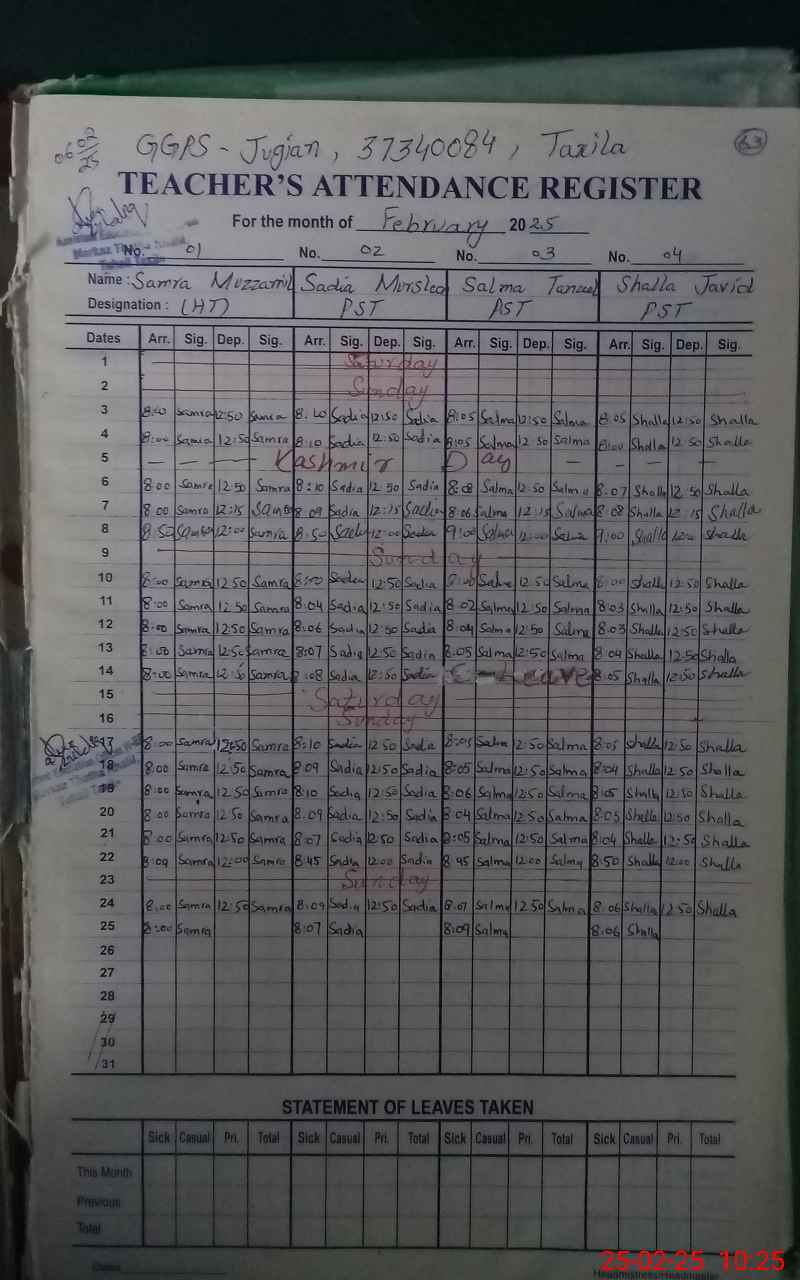 06/02/25 GGPS - Jugian, 37340084, Taxila 63
TEACHER'S ATTENDANCE REGISTER
For the month of February 2025
No. 01 No. 02 No. 03 No. 04
Name : Samra Muzzamil Sadia Mursleen Salma Shalla Javid
Designation : (HT) PST PST PST
Dates Arr. Sig. Dep. Sig. Arr. Sig. Dep. Sig. Arr. Sig. Dep. Sig. Arr. Sig. Dep. Sig.
1 Saturday
2 Sunday
3 Samra 12:50 Samra 8:10 Sadia 12:50 Sadia 8:05 Salma 12:50 Salma 8:05 Shalla 12:50 Shalla
4 8:00 Samra 12:50 Samra 8:10 Sadia 12:50 Sadia 8:05 Salma 12:50 Salma 8:00 Shalla 12:50 Shalla
5 — — — Kashmir Day — — —
6 8:00 Samra 12:50 Samra 8:10 Sadia 12:50 Sadia 8:08 Salma 12:50 Salma 8:07 Shalla 12:50 Shalla
7 8:00 Samra 12:15 Samra 8:09 Sadia 12:15 Sadia 8:06 Salma 12:15 Salma 8:08 Shalla 12:15 Shalla
8 8:50 Samra 12:00 Samra 8:50 Sadia 12:00 Sadia 9:00 Salma 12:00 Salma 9:00 Shalla 12:00 Shalla
9 Sunday
10 8:00 Samra 12:50 Samra Sadia 12:50 Sadia Salma 12:50 Salma 8:00 Shalla 12:50 Shalla
11 8:00 Samra 12:50 Samra 8:04 Sadia 12:50 Sadia 8:02 Salma 12:50 Salma 8:03 Shalla 12:50 Shalla
12 8:00 Samra 12:50 Samra 8:06 Sadia 12:50 Sadia 8:04 Salma 12:50 Salma 8:03 Shalla 12:50 Shalla
13 8:00 Samra 12:50 Samra 8:07 Sadia 12:50 Sadia 8:05 Salma 12:50 Salma 8:04 Shalla 12:50 Shalla
14 8:00 Samra 12:50 Samra 8:08 Sadia 12:50 Sadia C-Leave 8:05 Shalla 12:50 Shalla
15 Saturday
16 Sunday
17 8:00 Samra 12:50 Samra 8:10 Sadia 12:50 Sadia 8:05 Salma 12:50 Salma 8:05 Shalla 12:50 Shalla
18 8:00 Samra 12:50 Samra 8:09 Sadia 12:50 Sadia 8:05 Salma 12:50 Salma 8:04 Shalla 12:50 Shalla
19 8:00 Samra 12:50 Samra 8:10 Sadia 12:50 Sadia 8:06 Salma 12:50 Salma 8:05 Shalla 12:50 Shalla
20 8:00 Samra 12:50 Samra 8:09 Sadia 12:50 Sadia 8:04 Salma 12:50 Salma 8:05 Shalla 12:50 Shalla
21 8:00 Samra 12:50 Samra 8:07 Sadia 12:50 Sadia 8:05 Salma 12:50 Salma 8:04 Shalla 12:50 Shalla
22 Samra 12:00 Samra 8:45 Sadia 12:00 Sadia 8:45 Salma 12:00 Salma 8:50 Shalla 12:00 Shalla
23 Sunday
24 8:00 Samra 12:50 Samra 8:09 Sadia 12:50 Sadia 8:07 Salma 12:50 Salma 8:06 Shalla 12:50 Shalla
25 8:00 Samra 8:07 Sadia 8:09 Salma 8:06 Shalla
26
27
28
29
30
31
STATEMENT OF LEAVES TAKEN
Sick Casual Pri. Total Sick Casual Pri. Total Sick Casual Pri. Total Sick Casual Pri. Total
This Month
Previous
Total
Dated
25-02-25 10:25